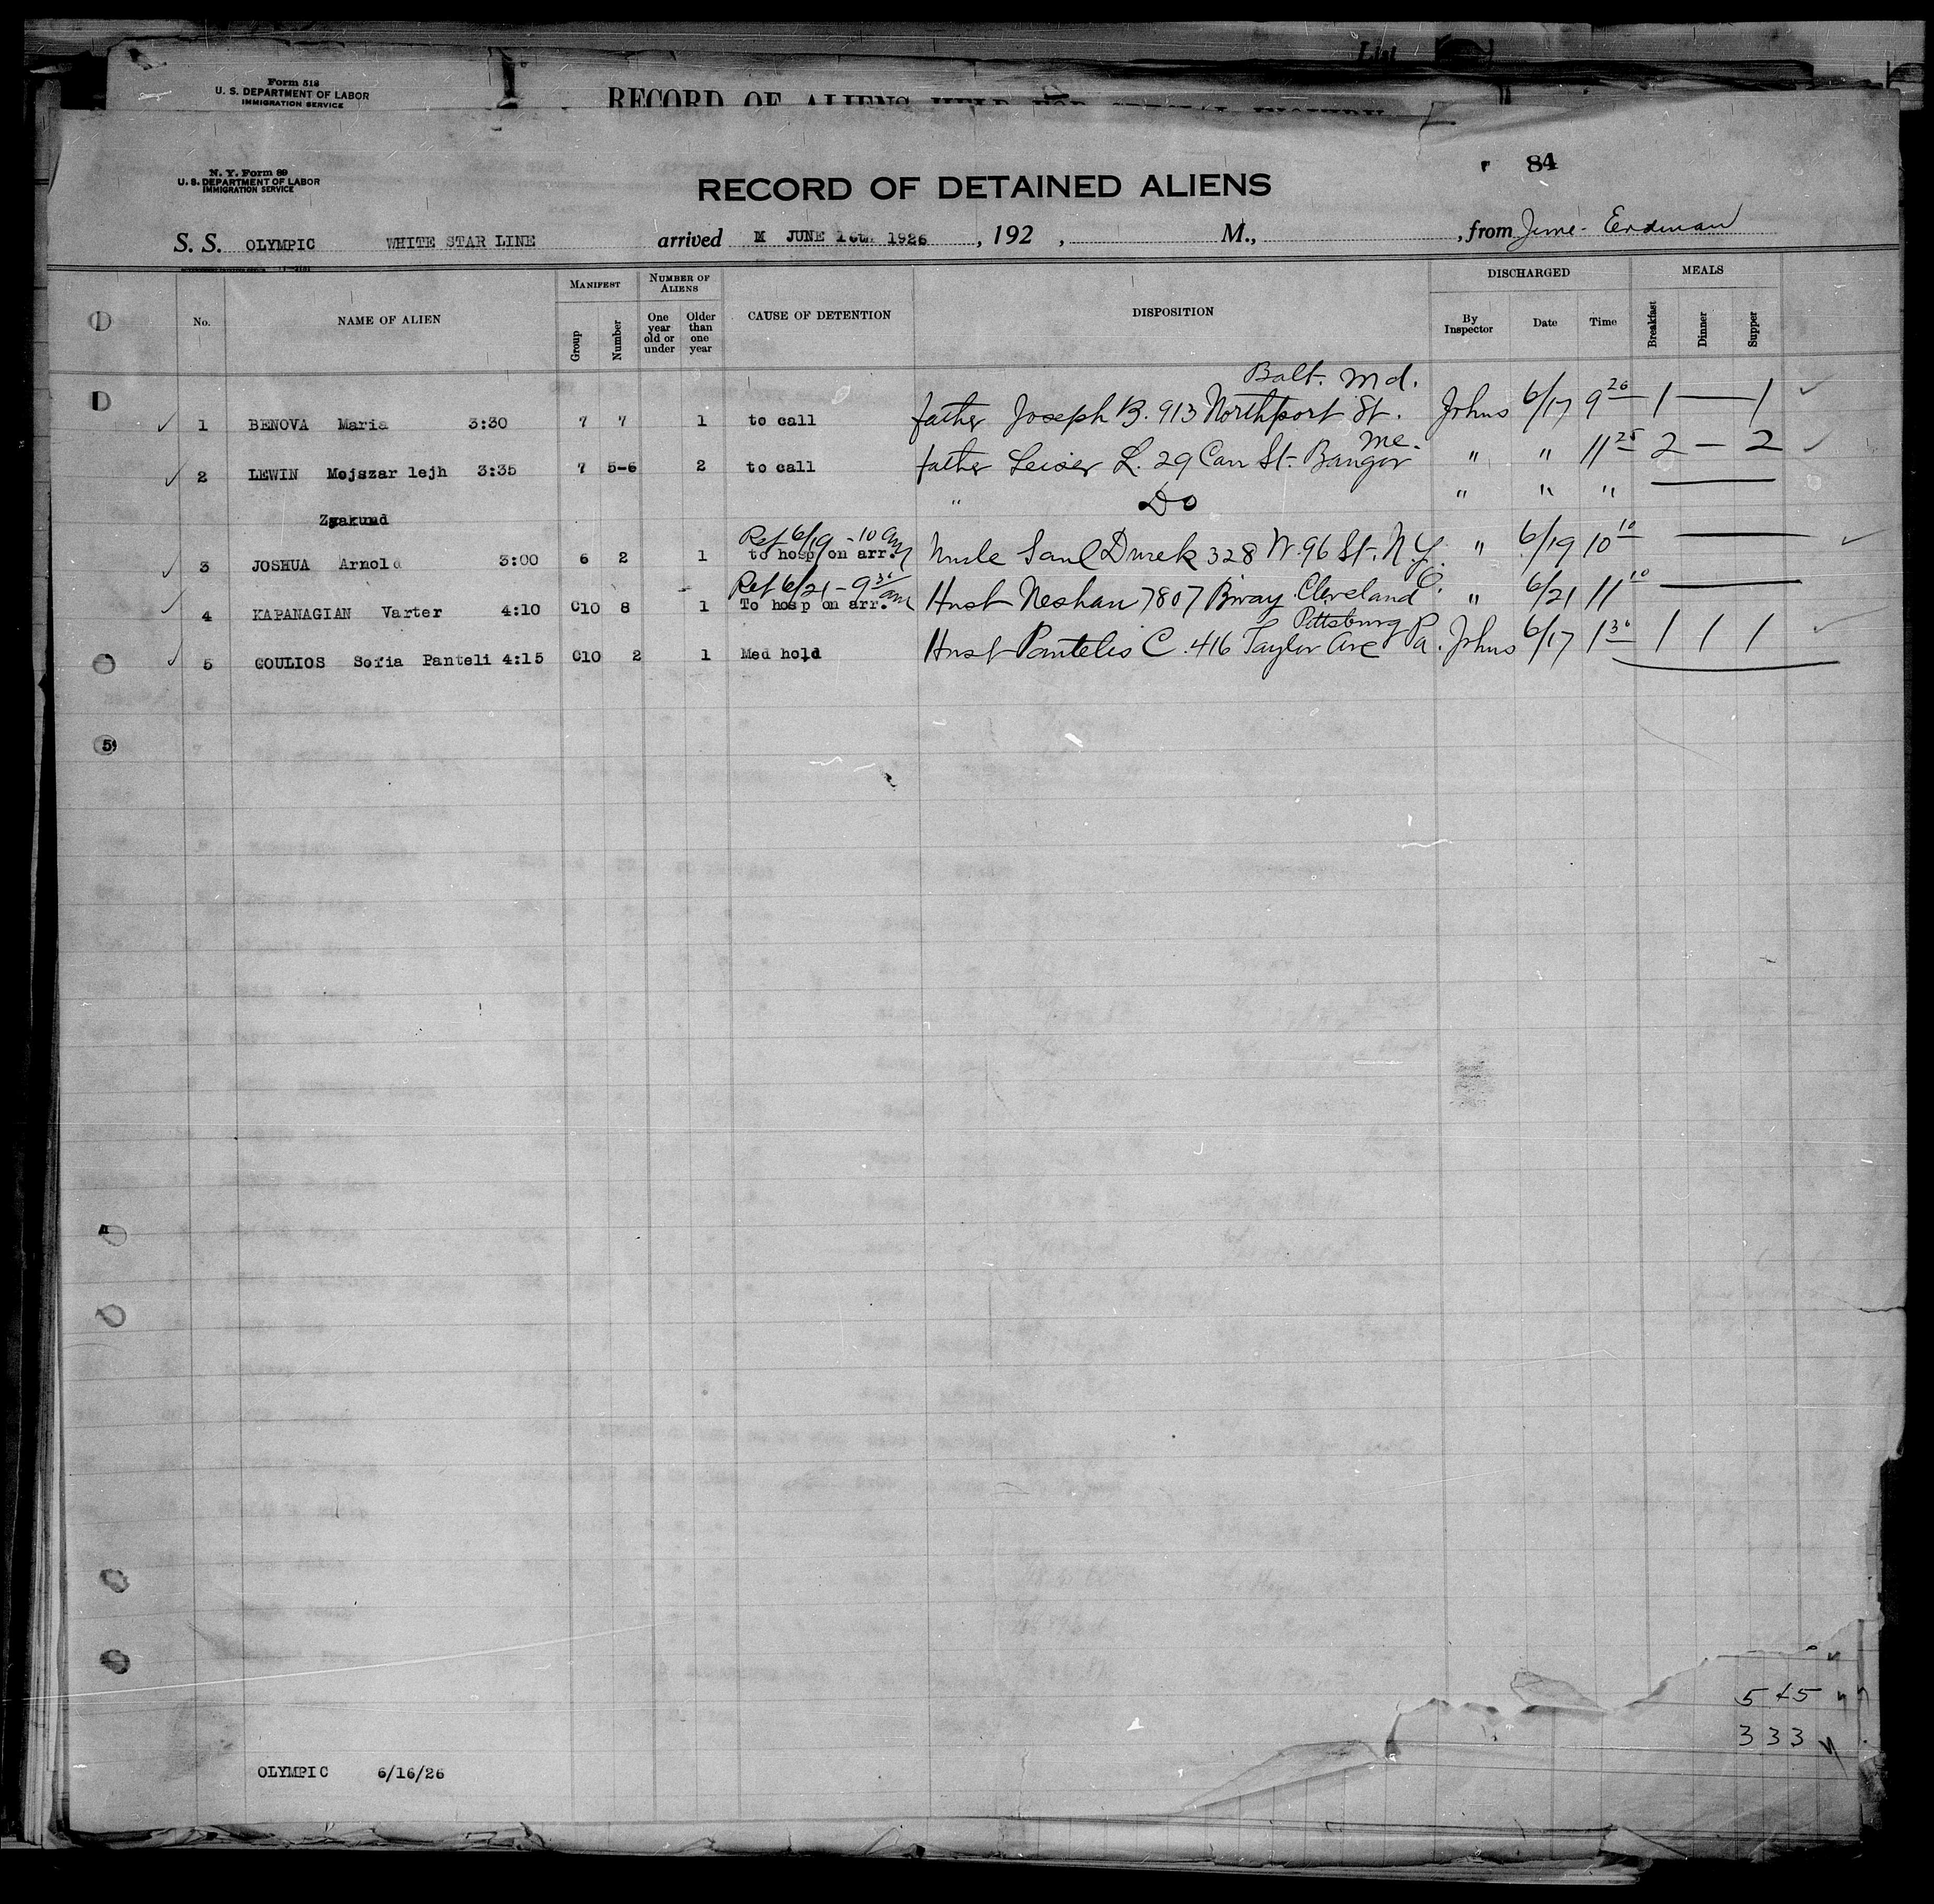 List
Form 518
U. S. DEPARTMENT OF LABOR
IMMIGRATION SERVICE
RECORD OF ALIENS HELD FOR SPECIAL INQUIRY
84
N. Y. Form 89
U. S. DEPARTMENT OF LABOR
IMMIGRATION SERVICE
RECORD OF DETAINED ALIENS
S. S. OLYMPIC WHITE STAR LINE arrived JUNE 16th 1926, 192 , M., , from Erdman
DISCHARGED MEALS
MANIFEST NUMBER OF ALIENS
No. NAME OF ALIEN Group Number One year old or under Older than one year CAUSE OF DETENTION DISPOSITION By Inspector Date Time Breakfast Dinner Supper
Balt. Md.
1 BENOVA Maria 3:30 7 7 1 to call father Joseph B. 913 Northport St. Johns 6/17 9 26 1 — 1
Me.
2 LEWIN Mojszar lejh 3:35 7 5-6 2 to call father Leiser L. 29 Carr St. Bangor " " 11 25 2 — 2
" Do " " "
Zyskund
Ret 6/19 - 10 am
3 JOSHUA Arnold 3:00 6 2 1 to hosp on arr. Uncle Saul Durek 328 W. 96 St. N.Y. " 6/19 10 10
Ret 6/21 - 9 30 am
4 KAPANAGIAN Varter 4:10 C10 8 1 To hosp on arr. Husb Neshan 7807 Bway Cleveland O. " 6/21 11 10
Pittsburg
5 GOULIOS Sofia Panteli 4:15 C10 2 1 Med hold Husb Pantelis C. 416 Taylor Ave Pa. Johns 6/17 1 30 1 1 1
5
333
OLYMPIC 6/16/26